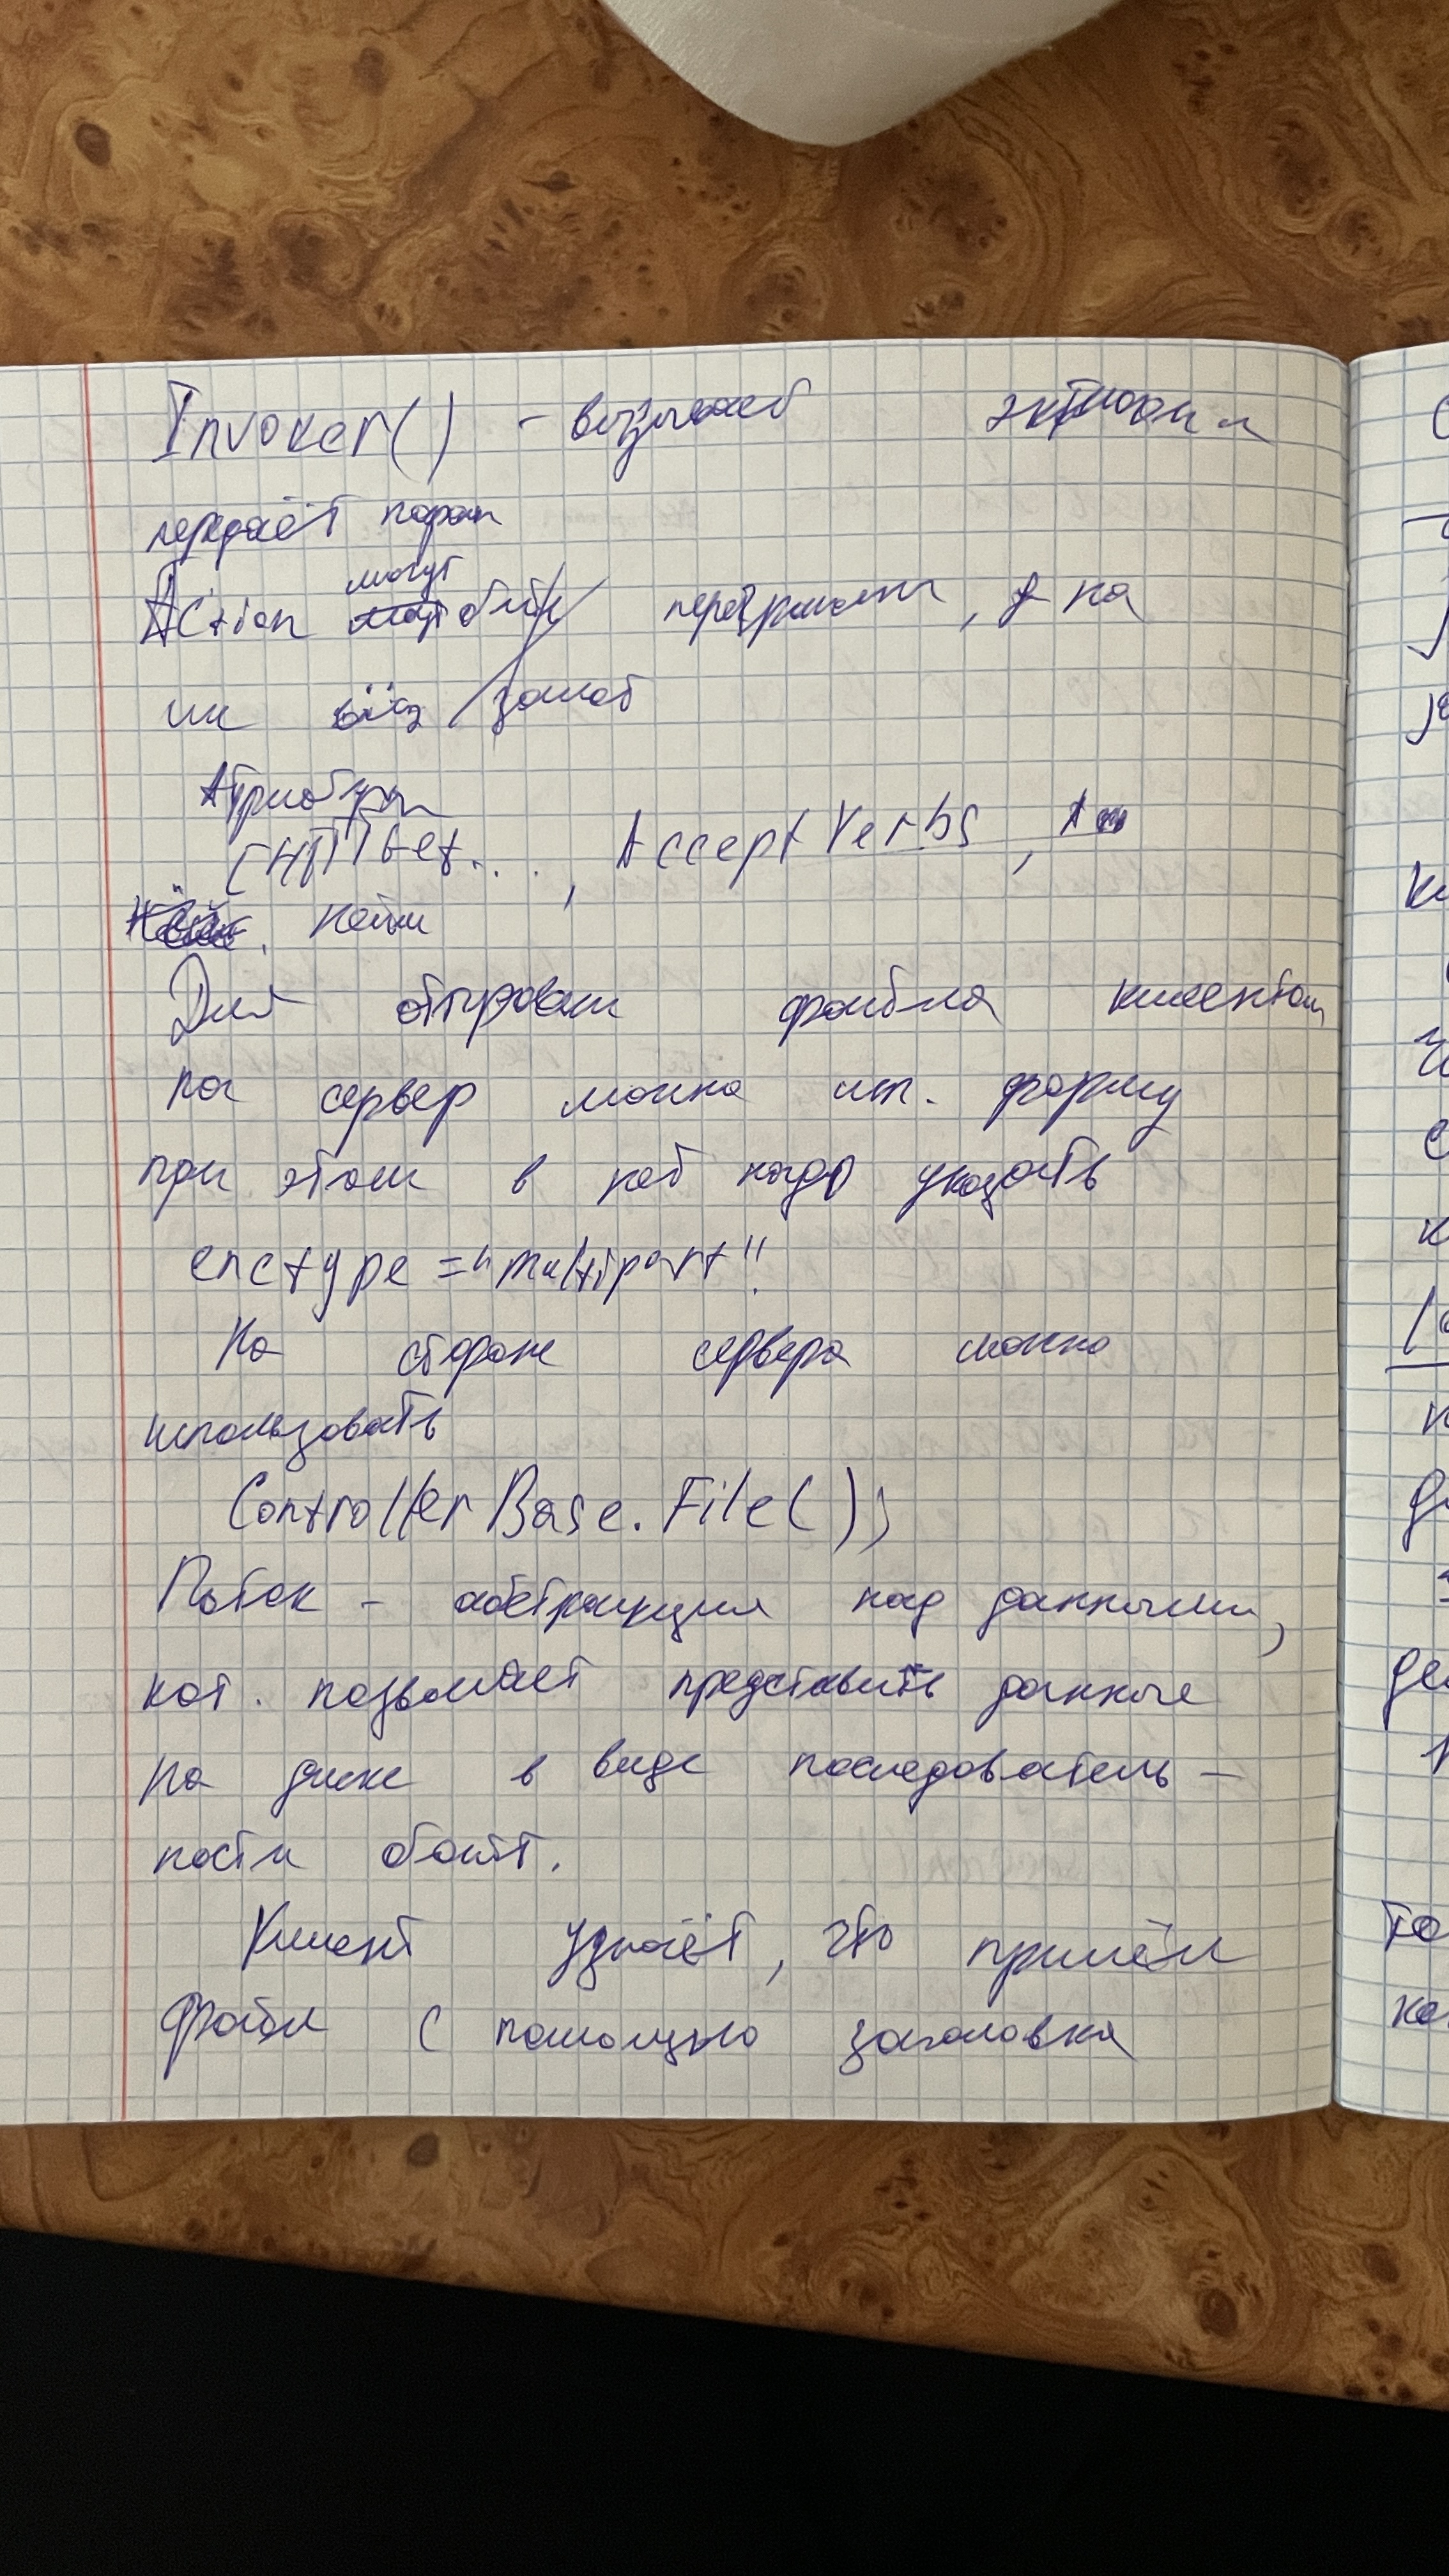 Invoker() - вызывает экшоны и
передаёт парам
Action могут быть перегружены, а на
их
Атрибуты
[HTTPGet...., AcceptVerbs,
Для отправки файла клиентом
на сервер можно исп. форму
при этом в ней надо указать
enctype="multipart"
На стороне сервера можно
использовать
ControllerBase.File();
Поток - абстракция над данными,
кот. позволяет представить данные
на диске в виде последователь-
ности байт.
Клиент узнаёт, что пришёл
файл с помощью заголовка